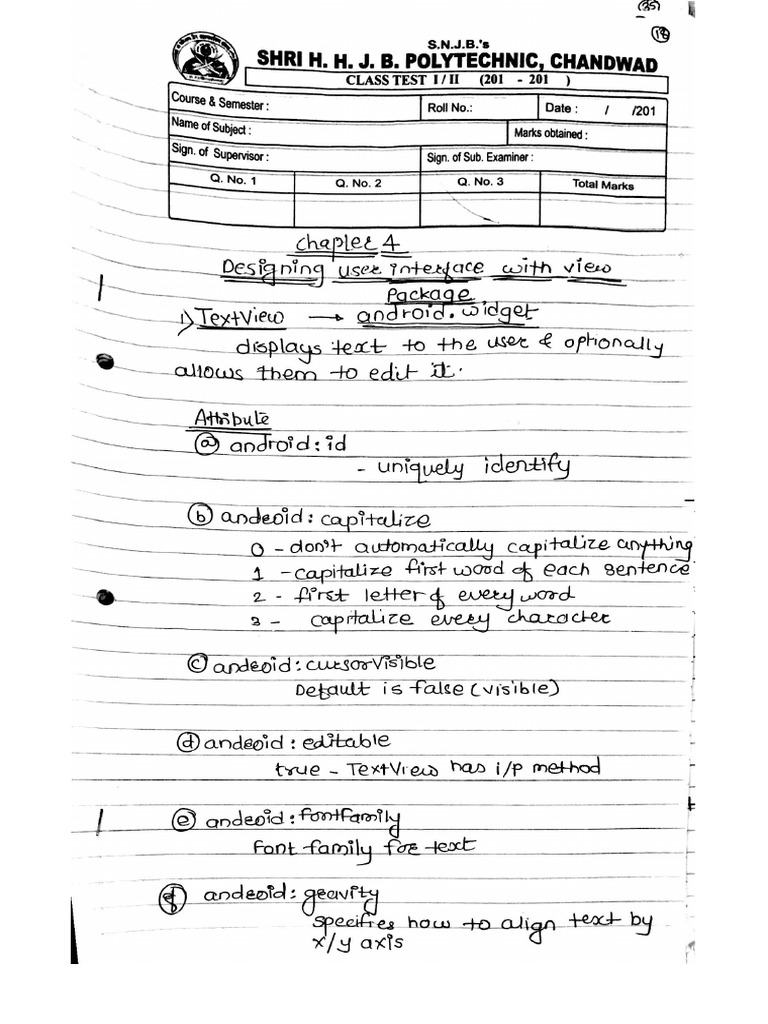 (35)
(18)
S.N.J.B.'s
SHRI H. H. J. B. POLYTECHNIC, CHANDWAD
CLASS TEST I / II (201 - 201 )
Course & Semester : Roll No.: Date : / /201
Name of Subject : Marks obtained :
Sign. of Supervisor : Sign. of Sub. Examiner :
Q. No. 1 Q. No. 2 Q. No. 3 Total Marks
Chapter 4
Designing user interface with view
Package
1) TextView → android.widget
displays text to the user & optionally
allows them to edit it.
Attribute
(a) android:id
- uniquely identify
(b) android: capitalize
0 - don't automatically capitalize anything
1 - capitalize first word of each sentence
2 - first letter of every word
3 - capitalize every character
(c) android: cursorVisible
Default is false (visible)
(d) android: editable
true - TextView has i/p method
(e) android: fontfamily
Font family for text
(f) android: gravity
specifies how to align text by
x/y axis